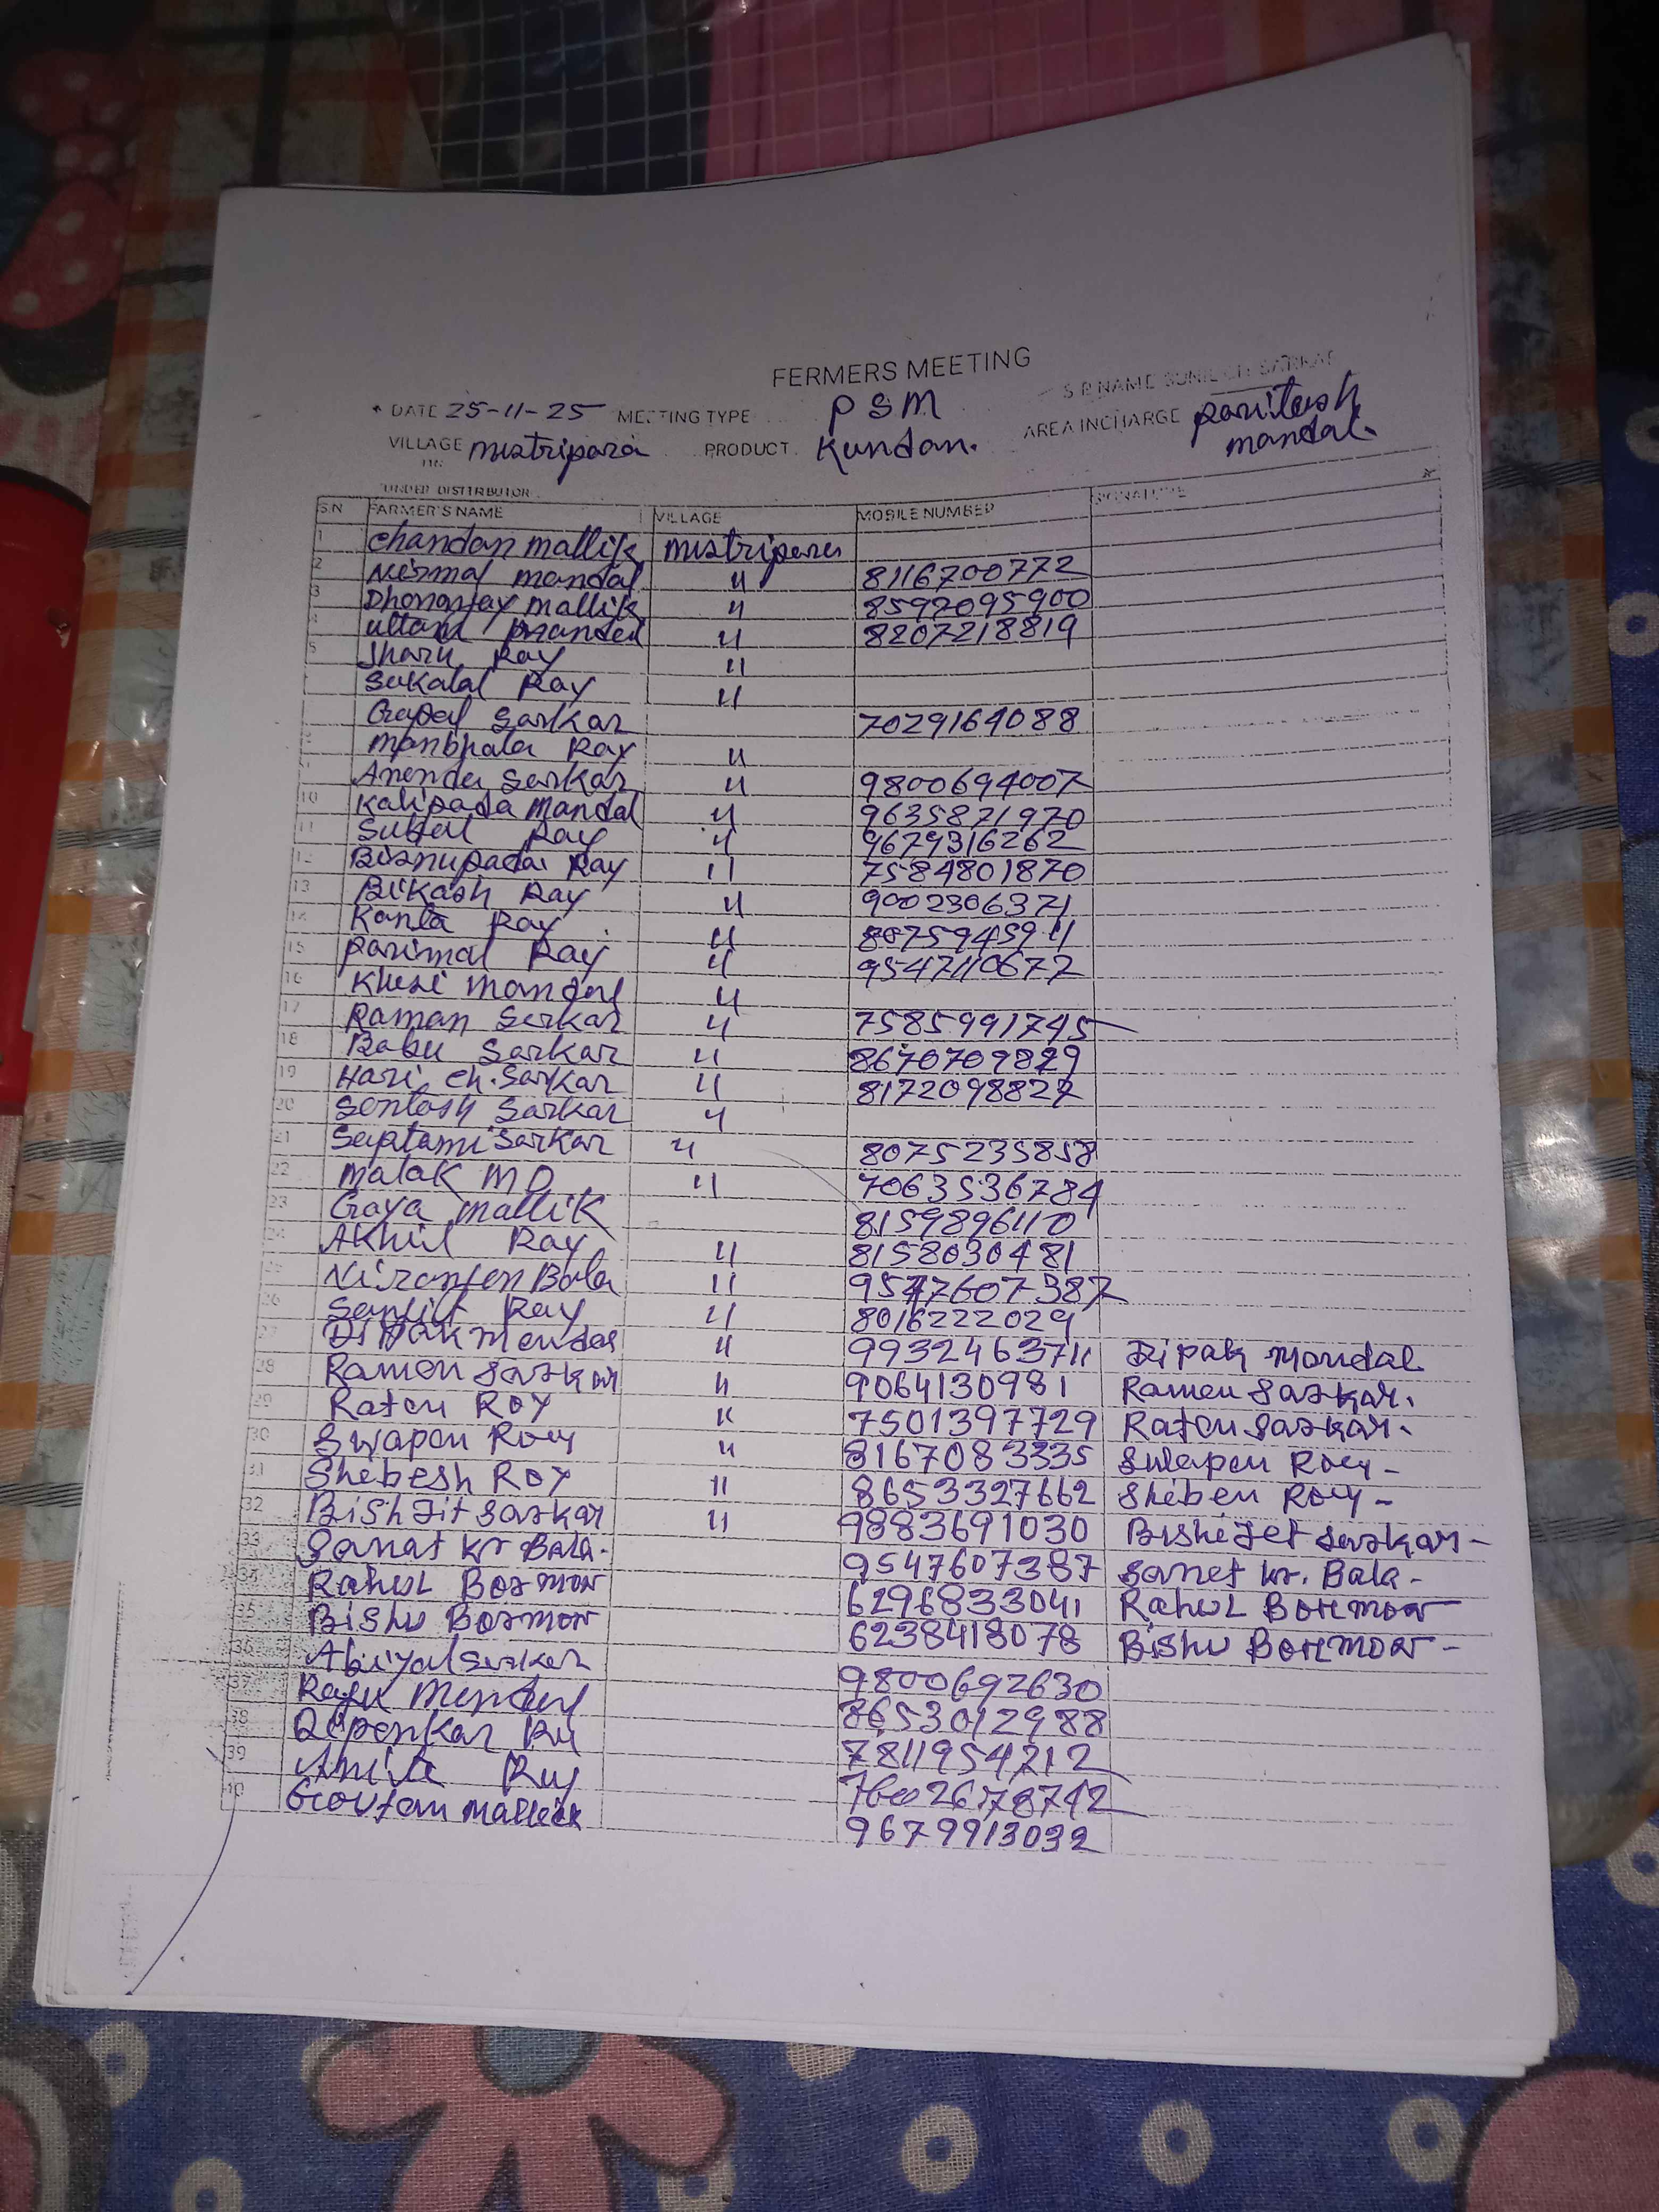 FERMERS MEETING
S R NAME SUNIL CH SARKAR
* DATE 25-11-25 MEETING TYPE PSM AREA INCHARGE paritosh mandal.
VILLAGE mistripara PRODUCT Kundan.
UNDER DISTTRIBUTOR
S.N FARMER'S NAME VILLAGE MOBILE NUMBER SIGNATURE
1 Chandan mallik mistripara
2 Nirmal mandal " 8116700772
3 Dhononjay mallik " 8592095900
4 uttam mandal " 8207218819
5 Jharu Ray "
Sukalal Ray "
Gopal Sarkar 7029164088
Monbhala Ray "
Anenda Sarkar " 9800694007
10 Kalipada Mandal " 9635871970
11 Subal Ray " 9679316262
12 Bisnupada Ray " 7584801870
13 Bikash Ray " 9002306371
14 Kanla Ray "
15 parimal Ray " 9547110672
16 Khesi mandal "
17 Raman Sarkar " 7585991745
18 Babu Sarkar " 8670709829
19 Hari ch. Sarkar " 8172098827
20 Sentosh Sarkar "
21 Saptami Sarkar " 8075235858
22 Malak MD " 7063536784
23 Gaya mallik 8159896110
24 Akhil Ray " 8158030481
25 Niranjen Bala " 9547607387
26 Senjit Ray " 8016222029
27 Dipak Mendal " 9932463711 Dipak Mondal
28 Ramen Sarkar " 9064130981 Ramen Sarkar.
29 Raten Roy " 7501397729 Raten Sarkar.
30 Swapen Roy " 8167083335 Swapen Roy -
31 Shebesh Roy " 8653327662 Sheben Roy -
32 Bishjit Sarkar " 9883691030 Bishejet Sarkar -
33 Sanat kr Bala. 9547607387 Sanet kr. Bala -
34 Rahul Bormon 6296833041 Rahul Bormon
35 Bishu Bormon 6238418078 Bishu Bormon -
36 Abiyal Sarkar 9800692630
37 Raju Mendal 8653012988
38 Dipenkar Ru 7811954212
39 Amila Ruy
40 Goutam Malleck 9679913032